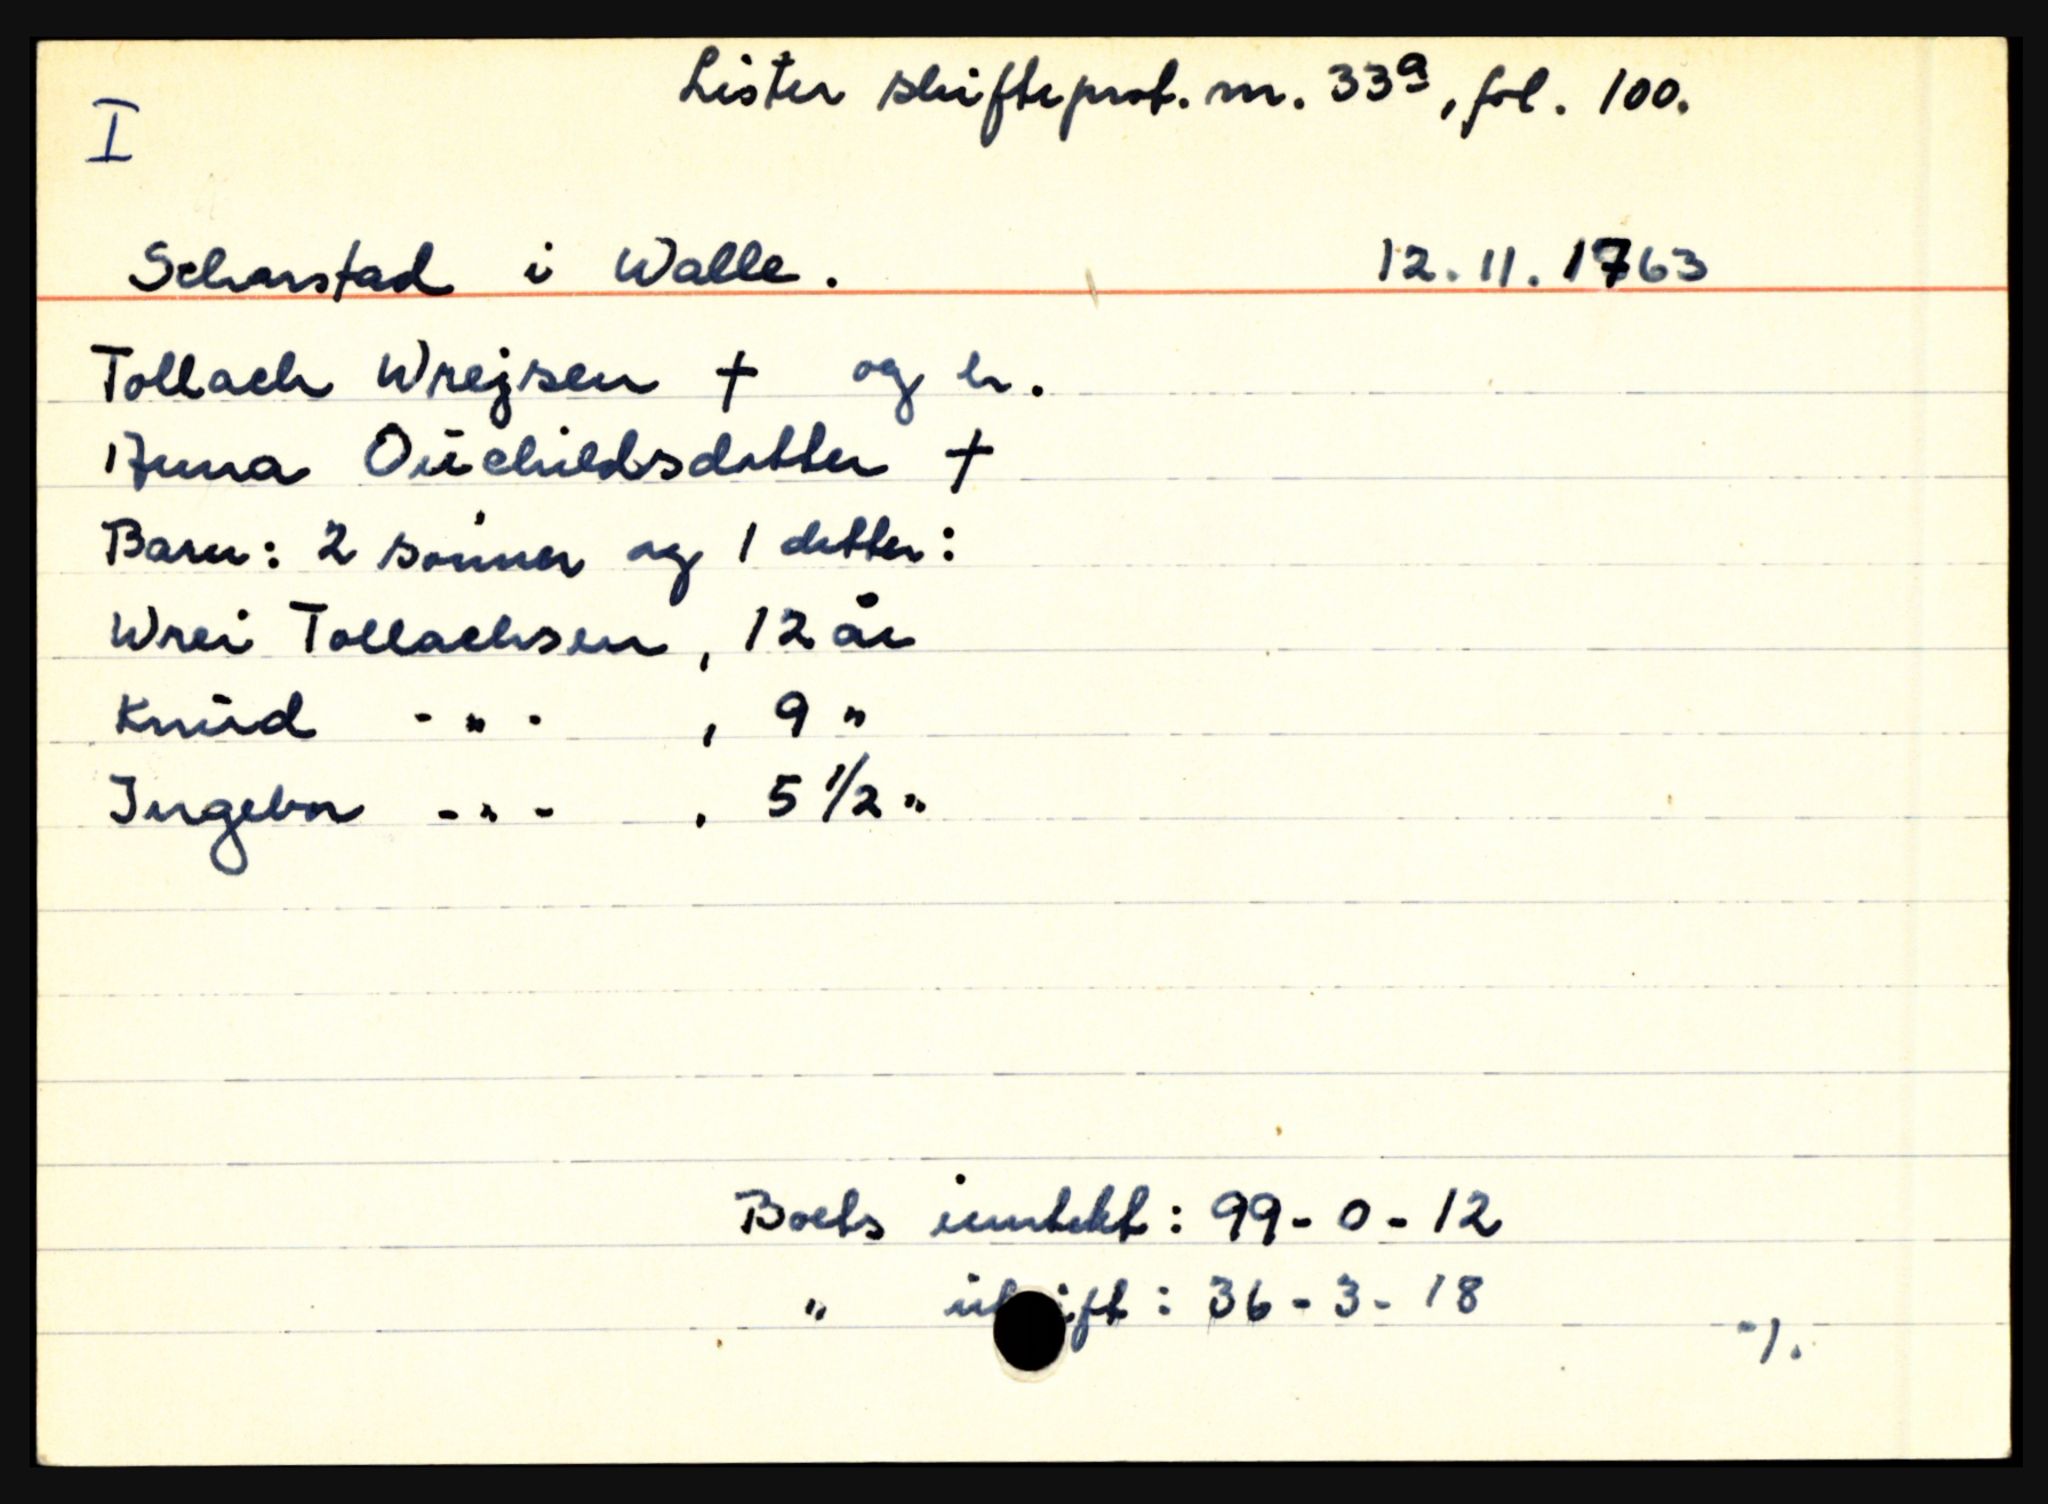 Lister skifteprot. nr. 33a, fol. 100.
I
Scharstad i Walle. 12.11.1763
Tollach Wrejsen † og h.
Anna Oüchildsdatter †
Barn: 2 sønner og 1 datter:
Wrei Tollachsen, 12 år
Knüd -"- , 9 "
Ingebor -"- , 5 1/2 "
Boets inntekt: 99-0-12
" 36-3-18